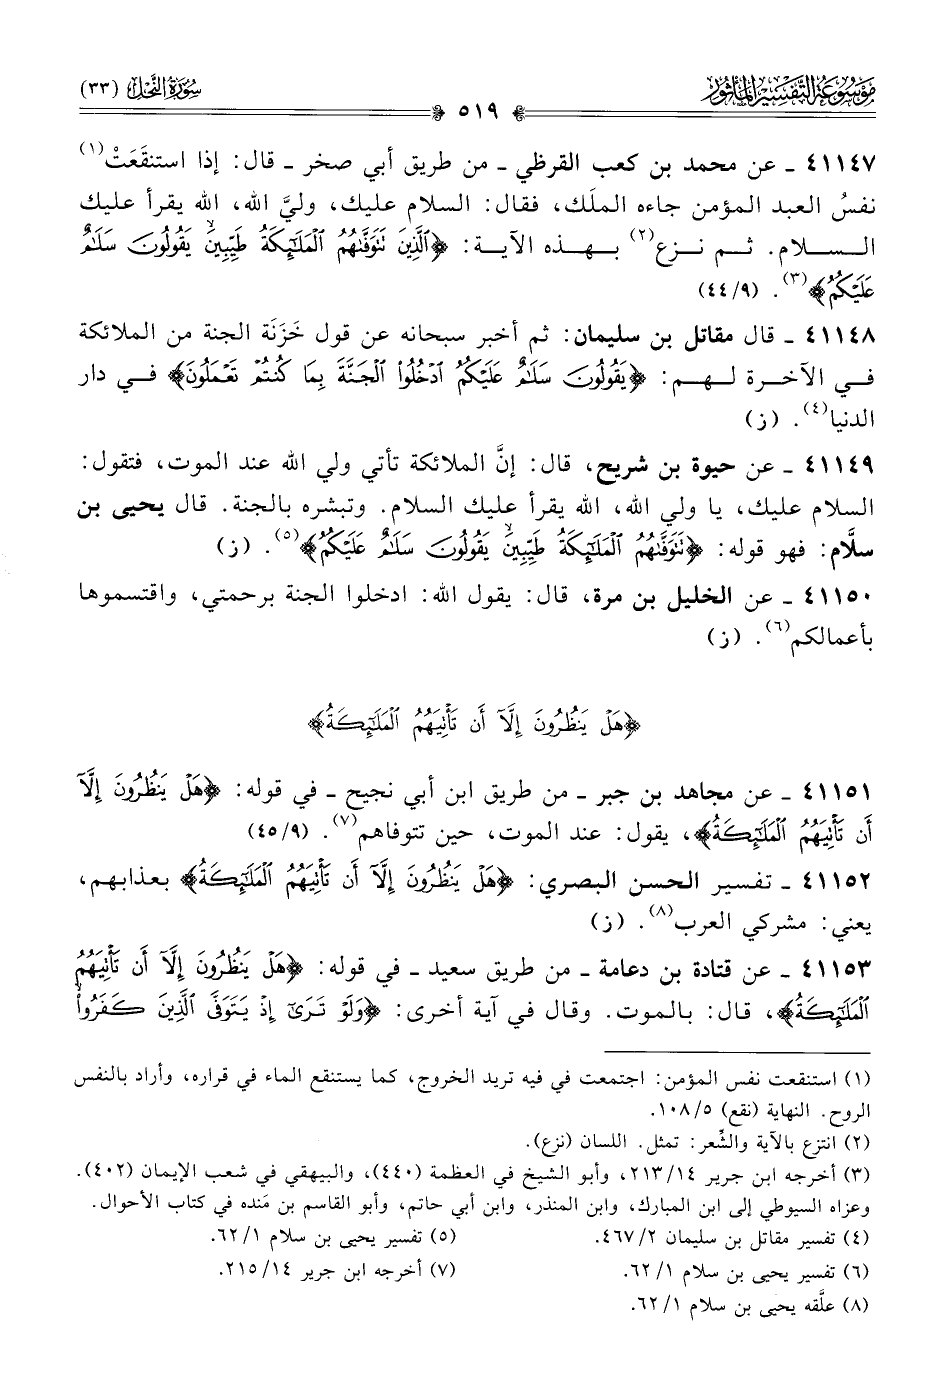 مَوْسُوعَةُ التَّفْسِيرِ المَأْثُور
سُورَةُ النَّحْلِ (٣٣)
٥١٩
٤١١٤٧ ـ عن محمد بن كعب القرظي ـ من طريق أبي صخر ـ قال: إذا استنقَعَتْ(١)
نفسُ العبد المؤمن جاءه الملَك، فقال: السلام عليك، وليَّ الله، الله يقرأ عليك
السلام. ثم نزع(٢) بهذه الآية: ﴿ٱلَّذِينَ تَتَوَفَّىٰهُمُ ٱلْمَلَٰٓئِكَةُ طَيِّبِينَ ۙ يَقُولُونَ سَلَٰمٌ
عَلَيْكُمُ﴾(٣). (٩/٤٤)
٤١١٤٨ ـ قال مقاتل بن سليمان: ثم أخبر سبحانه عن قول خَزَنَة الجنة من الملائكة
في الآخرة لهم: ﴿يَقُولُونَ سَلَٰمٌ عَلَيْكُمُ ٱدْخُلُوا۟ ٱلْجَنَّةَ بِمَا كُنتُمْ تَعْمَلُونَ﴾ في دار
الدنيا(٤). (ز)
٤١١٤٩ ـ عن حيوة بن شريح، قال: إنَّ الملائكة تأتي ولي الله عند الموت، فتقول:
السلام عليك، يا ولي الله، الله يقرأ عليك السلام. وتبشره بالجنة. قال يحيى بن
سلَّام: فهو قوله: ﴿تَتَوَفَّىٰهُمُ ٱلْمَلَٰٓئِكَةُ طَيِّبِينَ ۙ يَقُولُونَ سَلَٰمٌ عَلَيْكُمُ﴾(٥). (ز)
٤١١٥٠ ـ عن الخليل بن مرة، قال: يقول الله: ادخلوا الجنة برحمتي، واقتسموها
بأعمالكم(٦). (ز)
﴿هَلْ يَنظُرُونَ إِلَّآ أَن تَأْتِيَهُمُ ٱلْمَلَٰٓئِكَةُ﴾
٤١١٥١ ـ عن مجاهد بن جبر ـ من طريق ابن أبي نجيح ـ في قوله: ﴿هَلْ يَنظُرُونَ إِلَّآ
أَن تَأْتِيَهُمُ ٱلْمَلَٰٓئِكَةُ﴾، يقول: عند الموت، حين تتوفاهم(٧). (٩/٤٥)
٤١١٥٢ ـ تفسير الحسن البصري: ﴿هَلْ يَنظُرُونَ إِلَّآ أَن تَأْتِيَهُمُ ٱلْمَلَٰٓئِكَةُ﴾ بعذابهم،
يعني: مشركي العرب(٨). (ز)
٤١١٥٣ ـ عن قتادة بن دعامة ـ من طريق سعيد ـ في قوله: ﴿هَلْ يَنظُرُونَ إِلَّآ أَن تَأْتِيَهُمُ
ٱلْمَلَٰٓئِكَةُ﴾، قال: بالموت. وقال في آية أخرى: ﴿وَلَوْ تَرَىٰٓ إِذْ يَتَوَفَّى ٱلَّذِينَ كَفَرُوا۟ ۙ
(١) استنقعت نفس المؤمن: اجتمعت في فيه تريد الخروج، كما يستنقع الماء في قراره، وأراد بالنفس
الروح. النهاية (نقع) ٥/١٠٨.
(٢) انتزع بالآية والشِّعر: تمثل. اللسان (نزع).
(٣) أخرجه ابن جرير ١٤/٢١٣، وأبو الشيخ في العظمة (٤٤٠)، والبيهقي في شعب الإيمان (٤٠٢).
وعزاه السيوطي إلى ابن المبارك، وابن المنذر، وابن أبي حاتم، وأبو القاسم بن مَنده في كتاب الأحوال.
(٤) تفسير مقاتل بن سليمان ٢/٤٦٧.
(٥) تفسير يحيى بن سلام ١/٦٢.
(٦) تفسير يحيى بن سلام ١/٦٢.
(٧) أخرجه ابن جرير ١٤/٢١٥.
(٨) علَّقه يحيى بن سلام ١/٦٢.